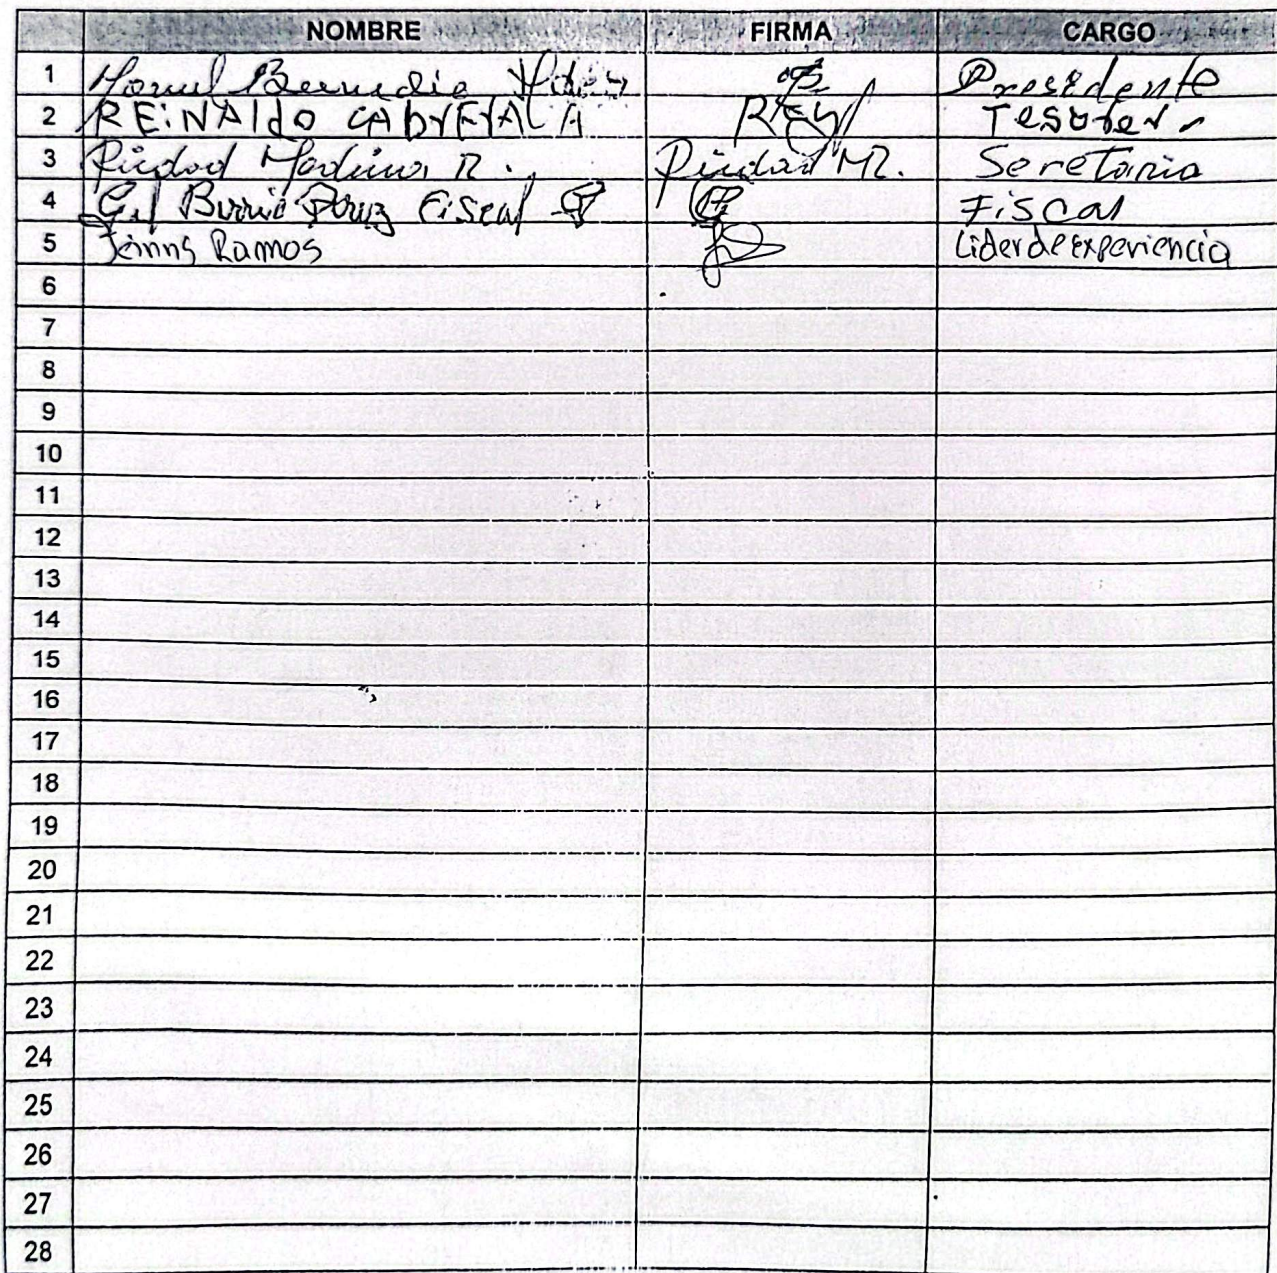 NOMBRE FIRMA CARGO
1 Presidente
2 REiNAldO CAbrErA L A REY Tesorero
3 Piedad Medina R. Piedad MR. Secretaria
4 Gil Fiscal Fiscal
5 Ramos Lider de experiencia
6
7
8
9
10
11
12
13
14
15
16
17
18
19
20
21
22
23
24
25
26
27
28